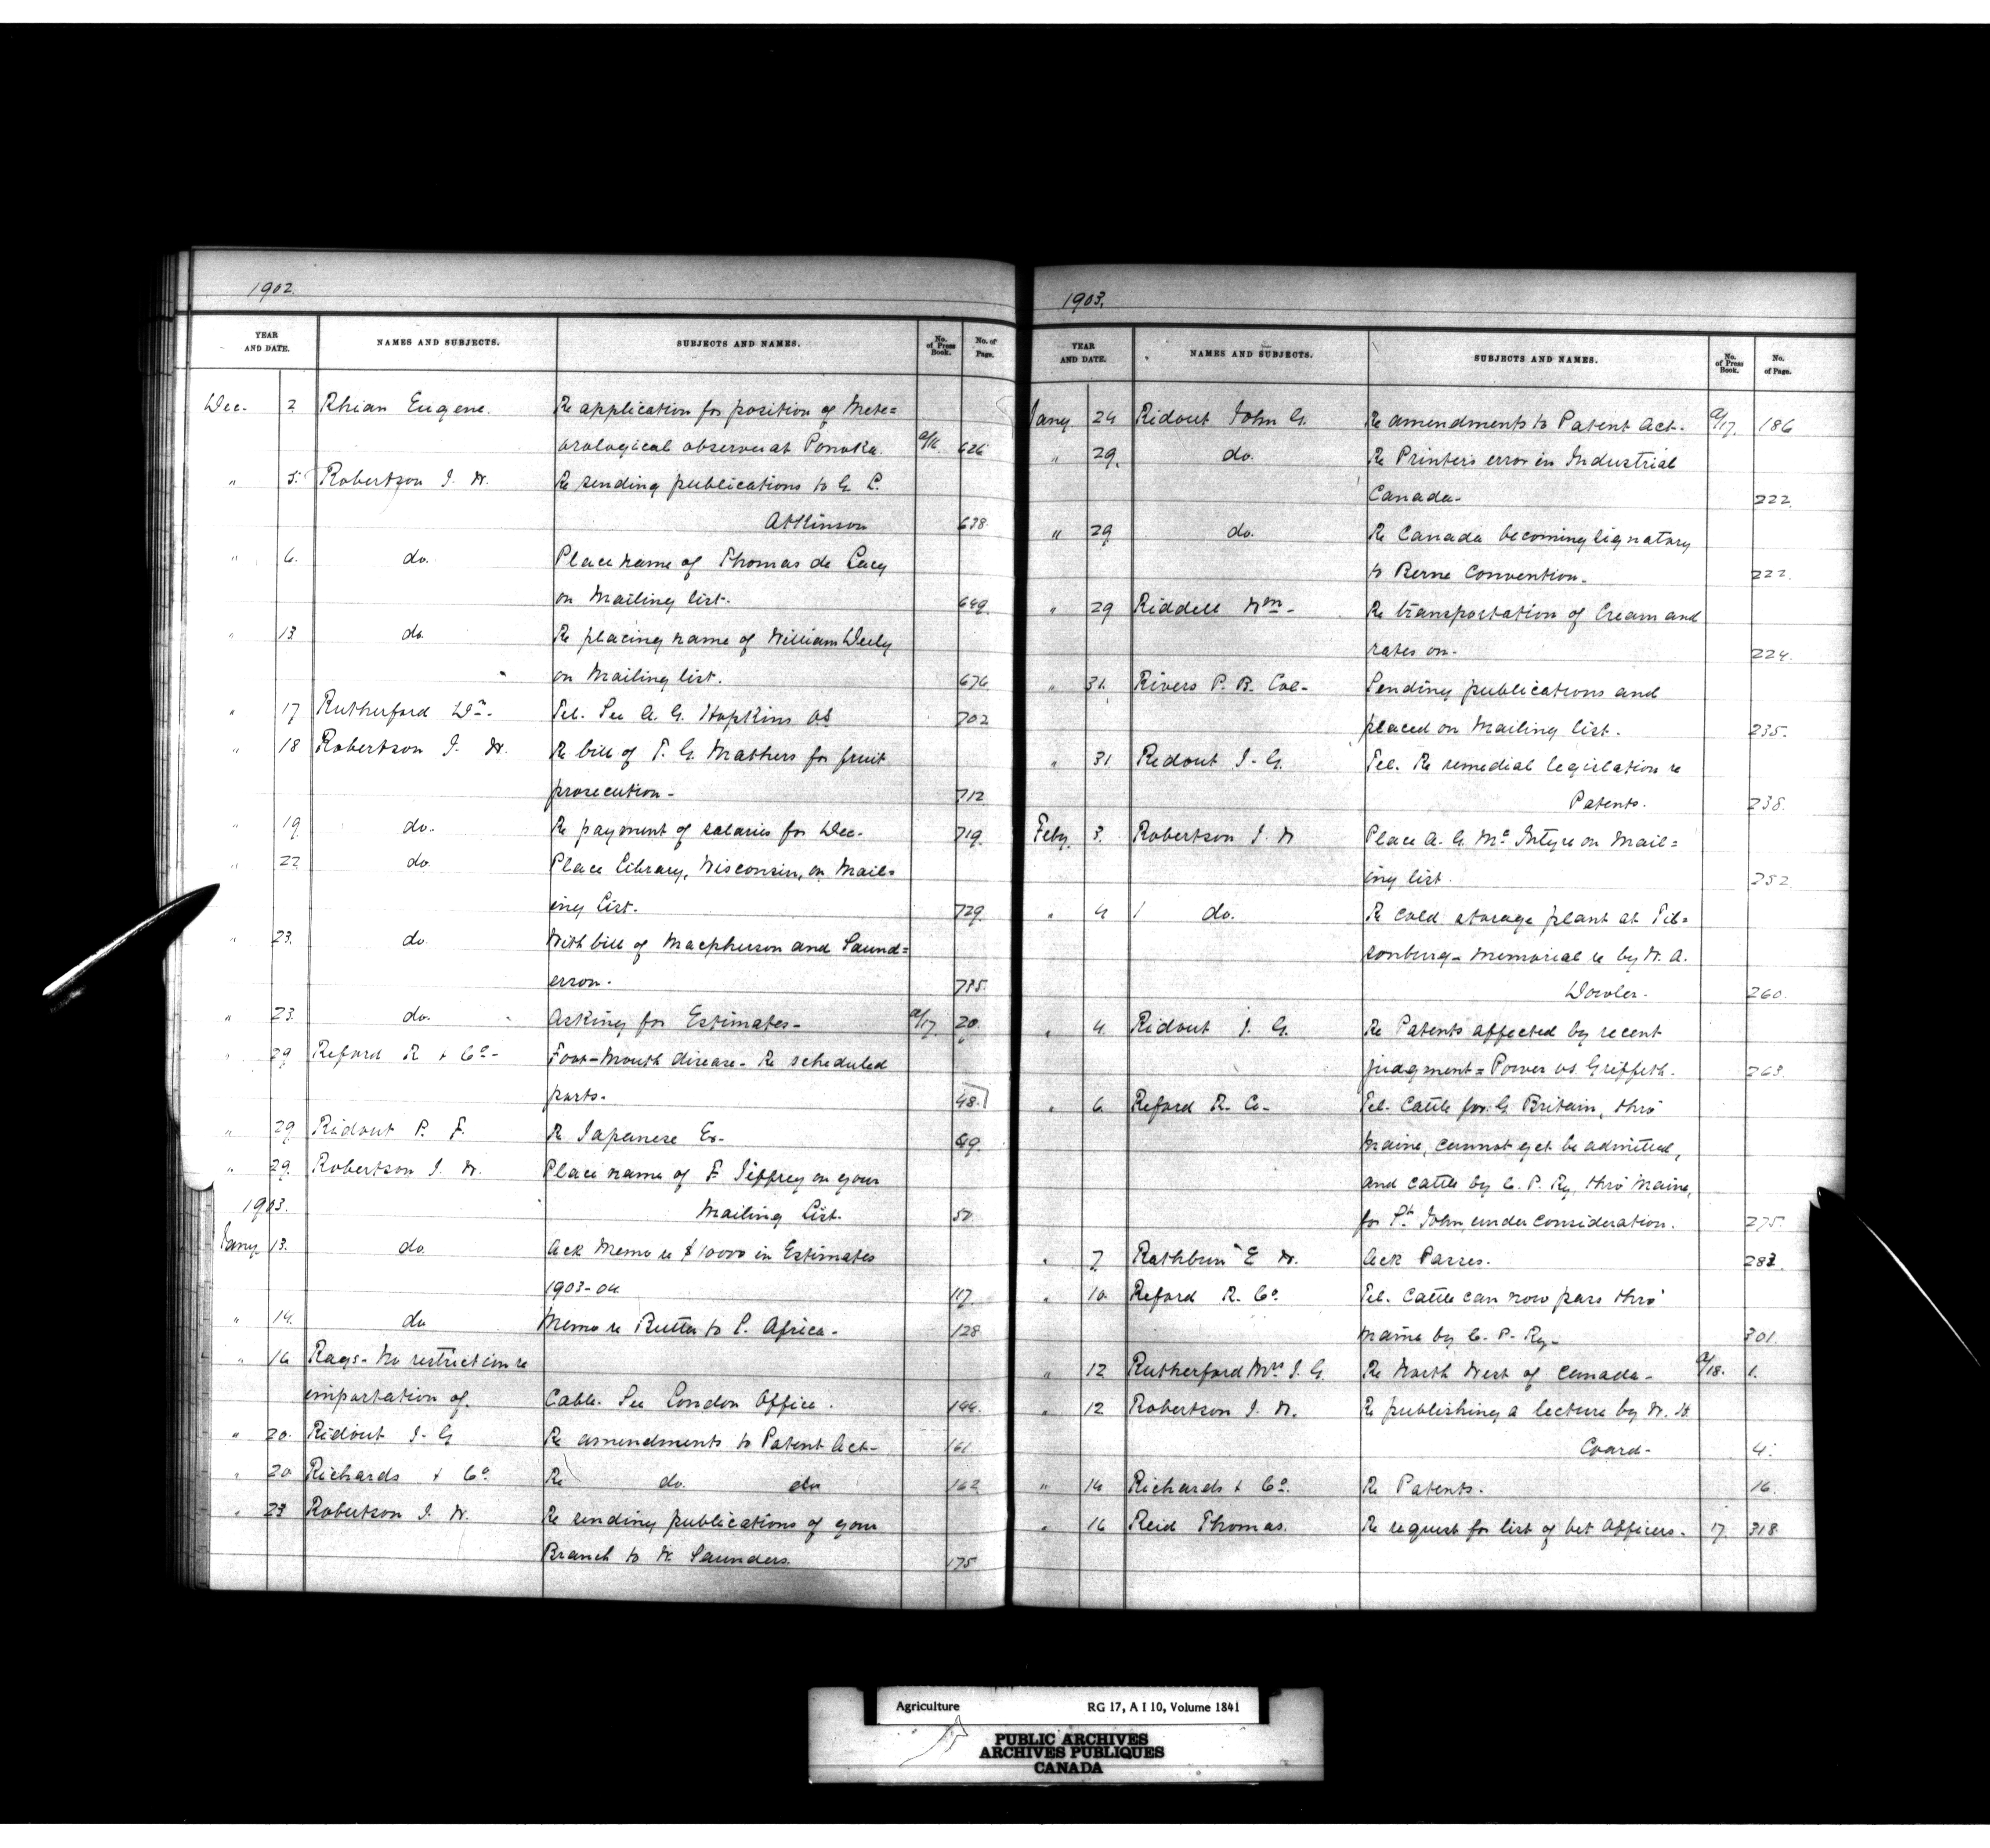 1902.
YEAR AND DATE. NAMES AND SUBJECTS. SUBJECTS AND NAMES. No. of Press Book. No. of Page.
Dec. 2 Rhian Eugene. Re application for position of Mete=
orological observer at Ponoka. a/16. 626
" 5. Robertson J. W. Re sending publications to G. L.
Atkinson 638.
" 6. do. Place name of Thomas de Lacy
on Mailing list. 649
" 13 do Re placing name of William Deely
on Mailing list. 676
" 17 Rutherford Dr. Tel. See A. G. Hopkins VS 702
" 18 Robertson J. W. Re bill of T. G. Mathers for fruit
prosecution - 712
" 19 do. Re payment of salaries for Dec. 719.
" 22 do. Place Library, Wisconsin, on Mail=
ing List. 729.
" 23. do With bill of Macpherson and Saund=
erson. 735.
" 23. do. Asking for Estimates - a/17. 20.
" 29 Reford R & Co - Foot-Mouth disease - Re scheduled
ports. 48.
" 29 Ridout P. F. Re Japanese Ex- 49.
" 29. Robertson J. W. Place name of F Jeffrey on your
1903. Mailing List. 50
Jany 13. do. Ack Memo re $10000 in Estimates
1903-04 117.
" 14. do Memo re Butter to S. Africa - 128
" 16 Rags - No restriction re
importation of. Cable. See London Office. 144.
" 20. Ridout J. G Re amendments to Patent Act - 161
" 20 Richards & Co. Re do. do 162
" 23 Robertson J. W. Re sending publications of your
Branch to W. Saunders. 175
1903.
YEAR AND DATE. NAMES AND SUBJECTS. SUBJECTS AND NAMES. No. of Press Book. No. of Page.
Jany 24 Ridout John G. Re amendments to Patent Act. a/17. 186
" 29. do. Re Printers error in Industrial
Canada - 222
" 29 do. Re Canada becoming signatory
to Berne Convention - 222.
" 29 Riddell Wm - Re transportation of Cream and
rates on - 224.
" 31. Rivers P. B. Col - Sending publications and
placed on Mailing list. 235.
" 31 Ridout J. G. Tel. Re remedial legislation re
Patents. 238.
Feby. 3. Robertson J. W Place A. G. McIntyre on Mail=
ing list. 252
" 4 do. Re cold storage plant at Til=
sonburg - Memorial re by W. A.
Dowler. 260.
" 4. Ridout J. G. Re Patents affected by recent
judgment = Power vs. Griffeth. 263.
" 6 Reford R. Co - Tel. Cattle for G Britain, thro'
Maine, cannot yet be admitted,
and cattle by C. P. Ry. thro' Maine,
for St John, under consideration. 275.
" 7. Rathbun E W. Ack Passes. 282.
" 10 Reford R. Co. Tel. Cattle can now pass thro'
Maine by C. P. Ry - 301.
" 12 Rutherford Mrs J. G. Re North West of Canada - a/18. 1.
" 12 Robertson J. W. Re publishing a lecture by W. H.
Coard - 4.
" 14 Richards & Co. Re Patents. 16.
" 16 Reid Thomas. Re request for list of Vet Officers - 17. 318.
Agriculture RG 17, A I 10, Volume 1841
PUBLIC ARCHIVES
ARCHIVES PUBLIQUES
CANADA